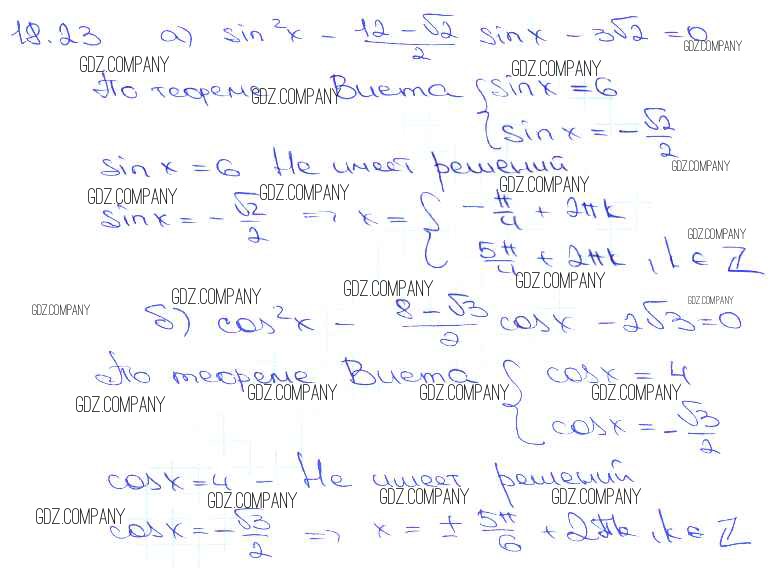 18.23 а) sin²x - (12-√2)/2 sinx - 3√2 = 0
GDZ.COMPANY GDZ.COMPANY GDZ.COMPANY
По теореме Виета { sinx = 6
GDZ.COMPANY
sinx = -√2/2
GDZ.COMPANY
sinx = 6 Не имеет решений
GDZ.COMPANY GDZ.COMPANY GDZ.COMPANY
sinx = -√2/2 => x = { -π/4 + 2πk
GDZ.COMPANY
5π/4 + 2πk, k ∈ Z
GDZ.COMPANY
GDZ.COMPANY GDZ.COMPANY GDZ.COMPANY GDZ.COMPANY
б) cos²x - (8-√3)/2 cosx - 2√3 = 0
По теореме Виета { cosx = 4
GDZ.COMPANY GDZ.COMPANY GDZ.COMPANY GDZ.COMPANY
cosx = -√3/2
cosx = 4 - Не имеет решений
GDZ.COMPANY GDZ.COMPANY GDZ.COMPANY GDZ.COMPANY
cosx = -√3/2 => x = ± 5π/6 + 2πk, k ∈ Z